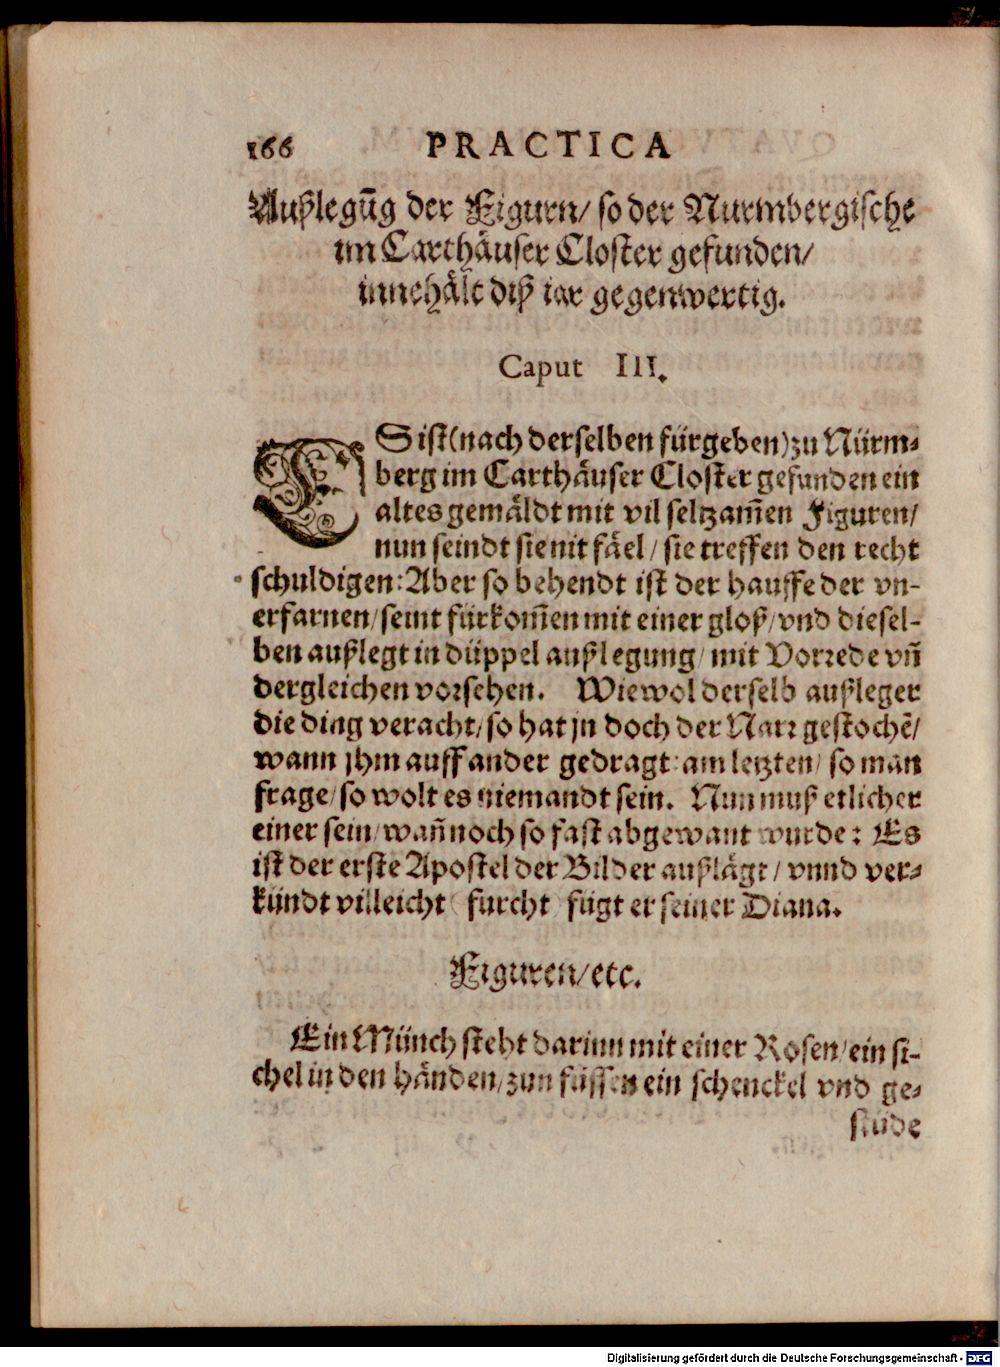 166 PRACTICA
Außlegūg der Figurn/ so der Nurmbergische
im Carthäuser Closter gefunden/
innehält diß iar gegenwertig.
Caput III.
ES ist (nach derselben fürgeben) zu Nürm-
berg im Carthäuser Closter gefunden ein
altes gemäldt mit vil seltzam̄en Figuren/
nun seindt sie nit fäel/ sie treffen den recht
schuldigen: Aber so behendt ist der hauffe der vn-
erfarnen/ seint fürkom̄en mit einer gloß/ vnd diesel-
ben außlegt in düppel außlegung/ mit Vorrede vn̄
dergleichen vorsehen. Wiewol derselb außleger
die ding veracht/ so hat jn doch der Narr gestochē/
wann jhm auff ander gedragt: am letzten/ so man
frage/ so wolt es niemandt sein. Nun muß etlicher
einer sein/ wan̄ noch so fast abgewant wurde: Es
ist der erste Apostel der Bilder außlägt/ vnnd ver-
kündt villeicht furcht fügt er seiner Diana.
Figuren/ etc.
Ein Münch steht darinn mit einer Rosen/ ein si-
chel in den händen/ zun füssen ein schenckel vnd ge-
stüde
Digitalisierung gefördert durch die Deutsche Forschungsgemeinschaft - DFG